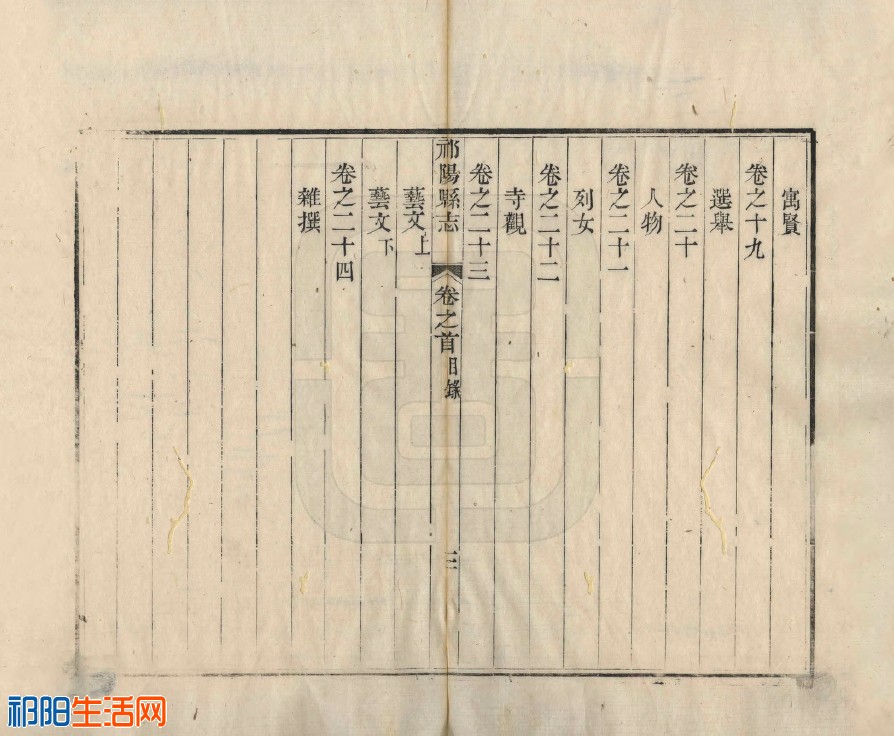 寓賢
卷之十九
選舉
卷之二十
人物
卷之二十一
列女
卷之二十二
寺觀
卷之二十三
祁陽縣志 卷之首 目錄 三
藝文上
藝文下
卷之二十四
雜撰
祁阳生活网